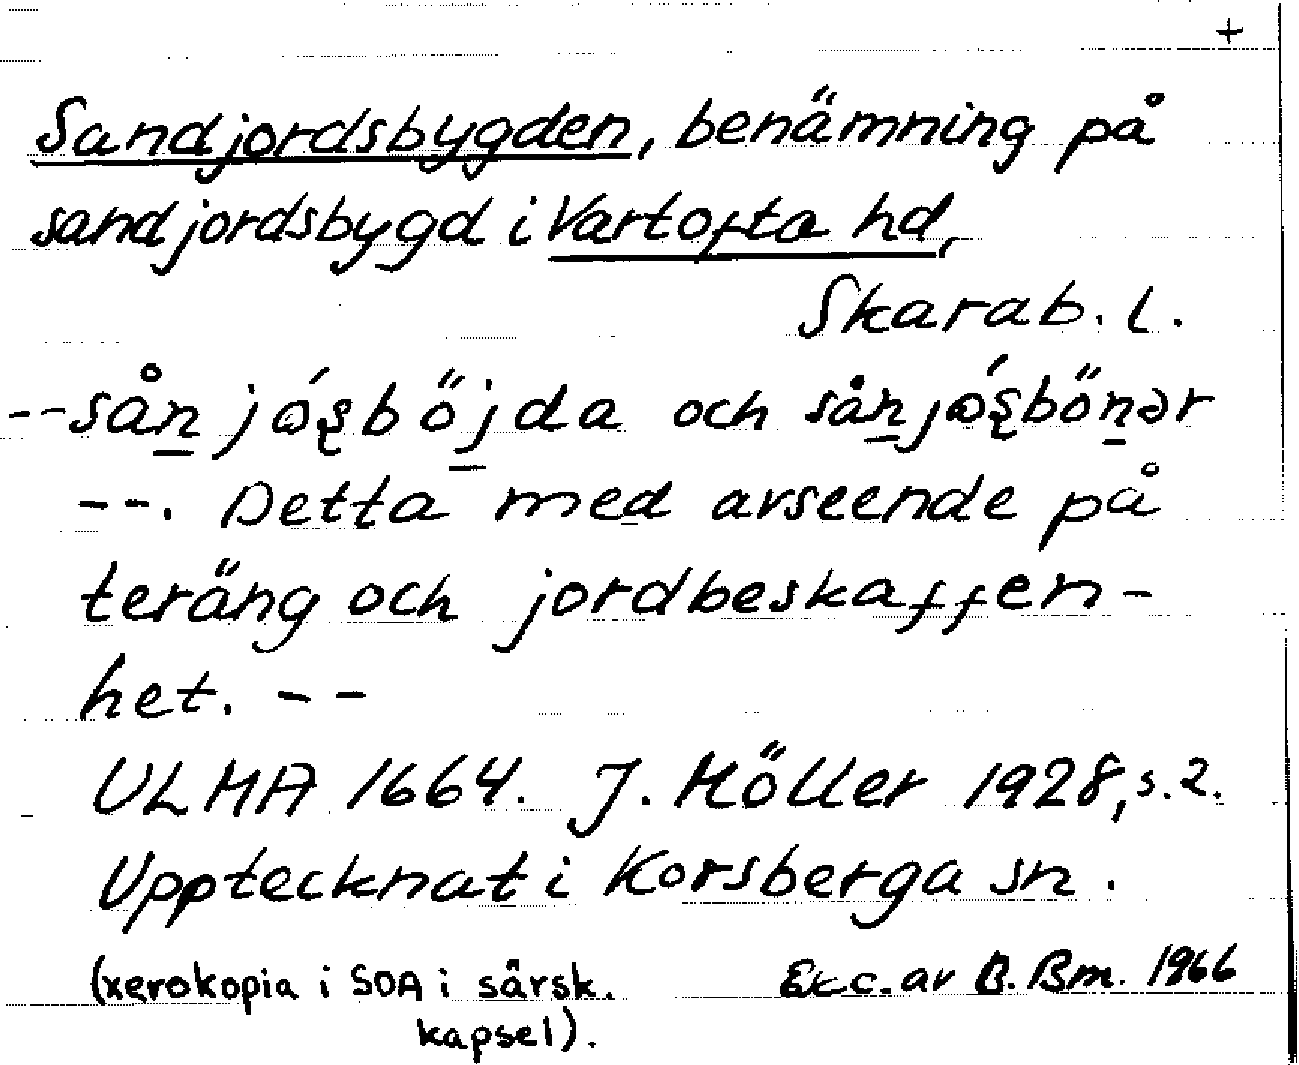 +
Sandjordsbygden, benämning på
sandjordsbygd i Vartofta hd,
Skarab. l.
-- sån jósböjda och sånjósbönər
--. Detta med avseende på
teräng och jordbeskaffen-
het. --
ULMA 1664. J. Möller 1928, s. 2.
Upptecknat i Korsberga sn.
(xerokopia i SOA i särsk.
kapsel).
Exc. av B. Bm. 1966